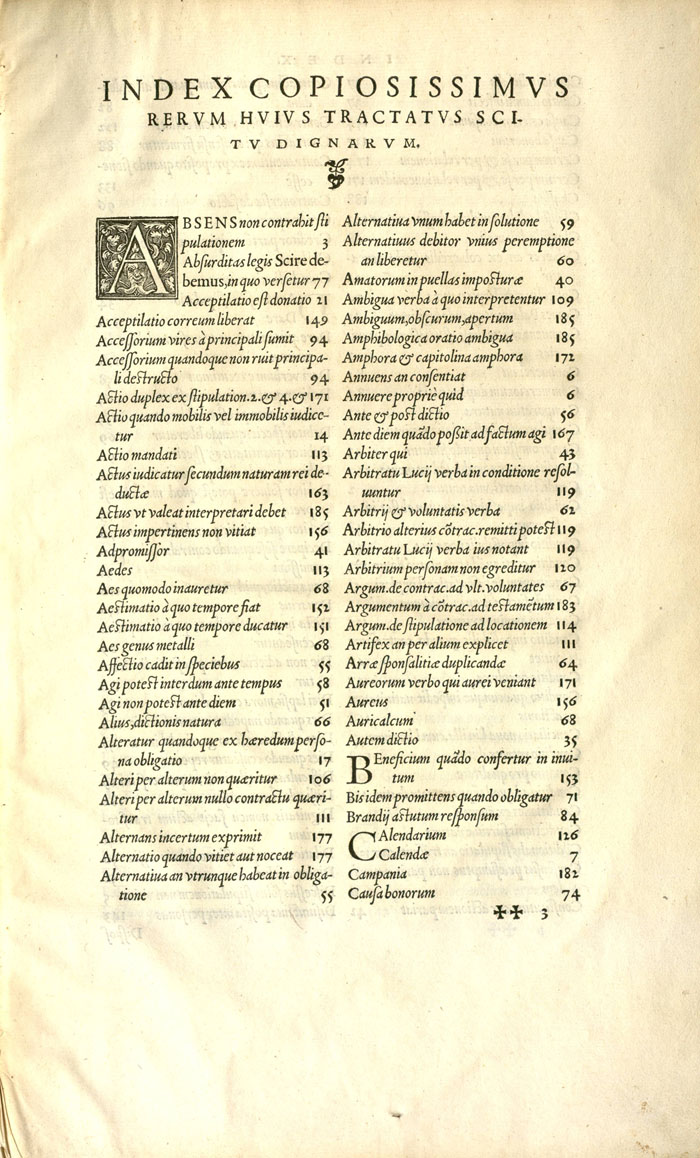 INDEX COPIOSISSIMVS
RERVM HVIVS TRACTATVS SCI-
TV DIGNARVM.
ABSENS non contrahit sti
pulationem 3
Absurditas legis Scire de-
bemus, in quo versetur 77
Acceptilatio est donatio 21
Acceptilatio correum liberat 149
Accessorium vires à principali sumit 94
Accessorium quandoque non ruit principa-
li destructo 94
Actio duplex ex stipulation. 2. & 4. & 171
Actio quando mobilis vel immobilis iudice-
tur 14
Actio mandati 113
Actus iudicatur secundum naturam rei de-
ductæ 163
Actus vt valeat interpretari debet 185
Actus impertinens non vitiat 156
Adpromissor 41
Aedes 113
Aes quomodo inauretur 68
Aestimatio à quo tempore fiat 152
Aestimatio à quo tempore ducatur 151
Aes genus metalli 68
Affectio cadit in speciebus 55
Agi potest interdum ante tempus 58
Agi non potest ante diem 51
Alius, dictionis natura 66
Alteratur quandoque ex hæredum perso-
na obligatio 17
Alteri per alterum non quæritur 106
Alteri per alterum nullo contractu quæri-
tur 111
Alternans incertum exprimit 177
Alternatio quando vitiet aut noceat 177
Alternatiua an vtrunque habeat in obliga-
tione 55
Alternatiua vnum habet in solutione 59
Alternatiuus debitor vnius peremptione
an liberetur 60
Amatorum in puellas imposturæ 40
Ambigua verba à quo interpretentur 109
Ambiguum, obscurum, apertum 185
Amphibologica oratio ambigua 185
Amphora & capitolina amphora 172
Annuens an consentiat 6
Annuere propriè quid 6
Ante & post dictio 56
Ante diem quãdo possit ad factum agi 167
Arbiter qui 43
Arbitratu Lucij verba in conditione resol-
uuntur 119
Arbitrij & voluntatis verba 62
Arbitrio alterius cõtrac. remitti potest 119
Arbitratu Lucij verba ius notant 119
Arbitrium personam non egreditur 120
Argum. de contrac. ad vlt. voluntates 67
Argumentum à cõtrac. ad testamẽtum 183
Argum. de stipulatione ad locationem 114
Artifex an per alium explicet 111
Arræ sponsalitiæ duplicandæ 64
Aureorum verbo qui aurei veniant 171
Aureus 156
Auricalcum 68
Autem dictio 35
BEneficium quãdo confertur in inui-
tum 153
Bis idem promittens quando obligatur 71
Brandij astutum responsum 84
CAlendarium 126
Calendæ 7
Campania 182
Causa bonorum 74
✠✠ 3